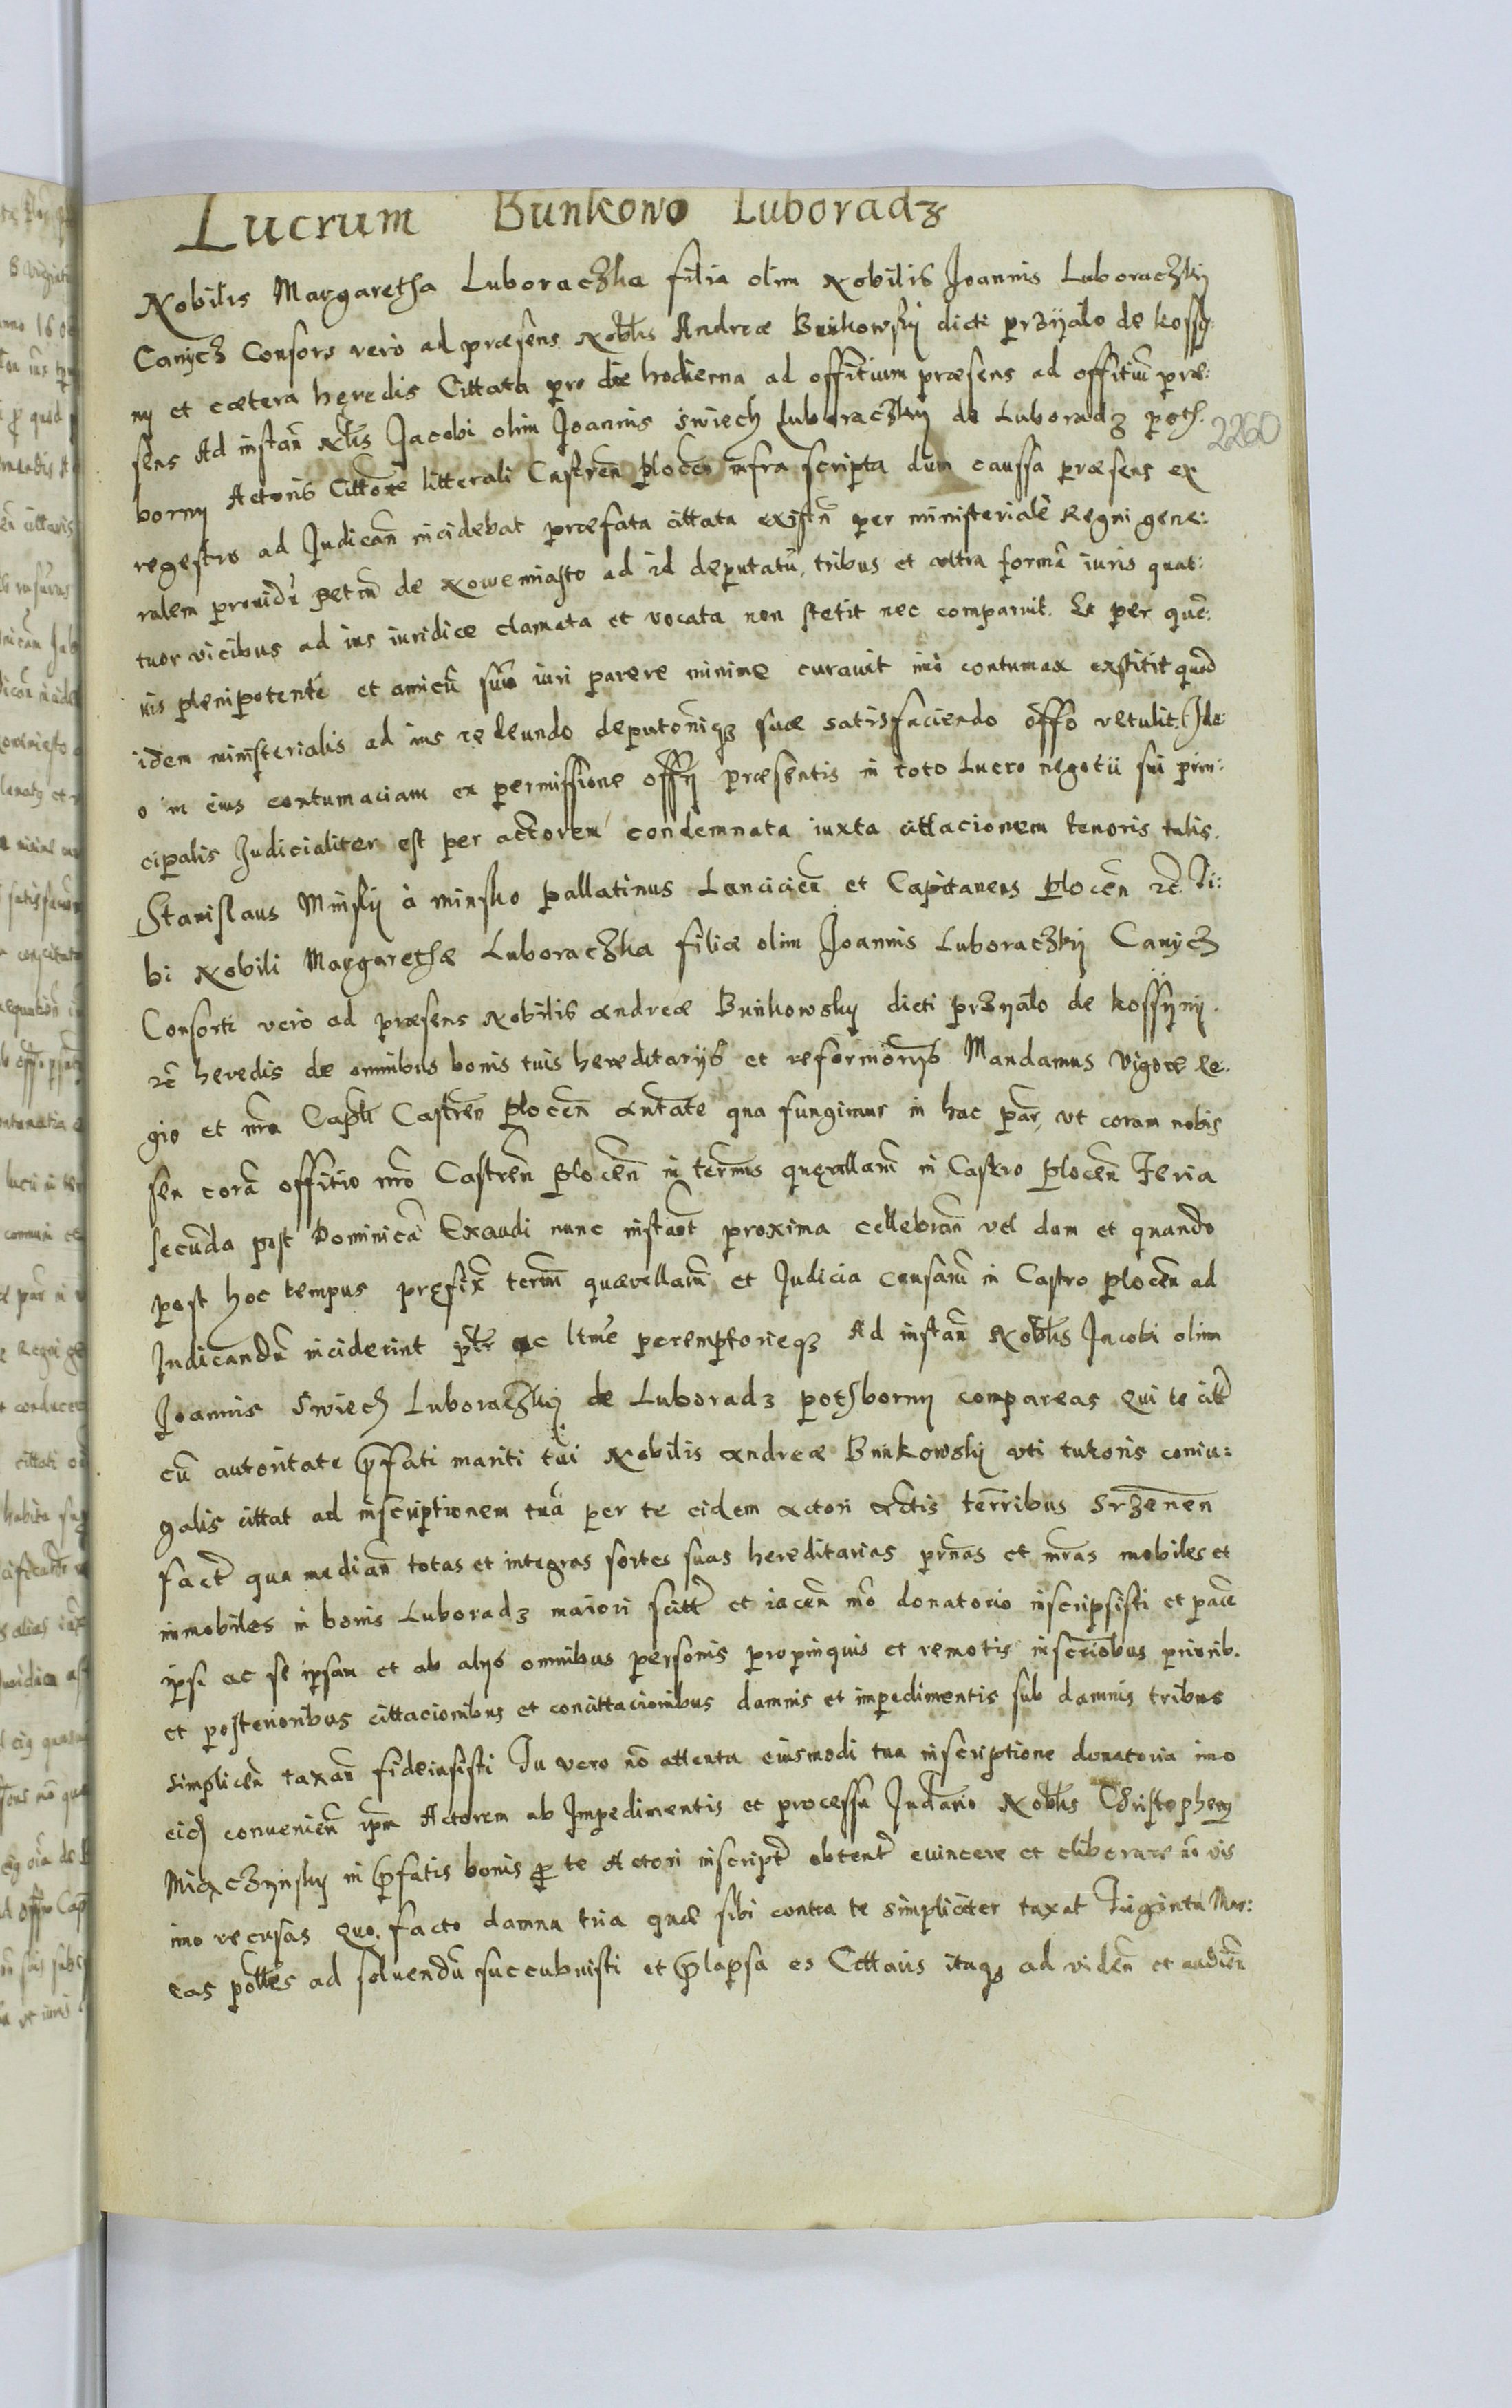 Lucrum Bunkowo Luboradz
Nobilis Margaretha Luboraczka filia olim Nobilis Joannis Luboraczky
Canycz Consors vero ad præsens Nobłis Andreæ Bunkowsky dicti przyiało de kossy:
ny et cætera heredis Cittata pro die hodierna ad offitium præsens ad offitiũ præ:
sens Ad instan̄ Nblis Jacobi olim Joannis Swiech Luboraczky de Luboradz poth:
2260
borny Actoris Cittone litterali Castren̄ plocen̄ infra scripta dum caussa præsens ex
regestro ad Judican̄ incidebat præfata cittata existn̄ per ministerialẽ Regni gene:
ralem prouidũ petrũ de Nowemiasto ad id deputatũ, tribus et ultra formã iuris quat:
tuor vicibus ad ius iuridice clamata et vocata non stetit nec comparuit. Et per quẽ:
uis plenipotentẽ et amicũ suũ iuri parere minime curauit imo contumax exstitit quod
idem ministerialis ad ius redeundo deputoniq3 suæ satisfaciendo offo retulit. Ide:
o in eius contumaciam ex permissione offy præsentis in toto Lucro negotii sui prin:
cipalis Judicialiter est per actorem condemnata iuxta cittacionem tenoris talis.
Stanislaus Minsky à minsko pallatinus Lancicien̄ et Capitaneus plocen̄ &c. Ti:
bi Nobili Margarethæ Luboraczka filiæ olim Joannis Luboraczky Canycz
Consorti vero ad præsens Nobilis Andreæ Bunkowsky dicti przyiało de kossyny.
&c heredis de omnibus bonis tuis hereditariis et reformoriis Mandamus vigore Re:
gio et nrã Capli Castren̄ plocen̄ Autate qua fungimur in hac par, ut coram nobis
seu corã offitio nrõ Castren̄ plocen̄ in terminis querellarũ in Castro plocen̄ Feria
secunda post Dominicã Exaudi nunc instant proxima cellebran̄ vel dum et quando
post hoc tempus præfix termĩ quærellarũ et Judicia Causarũ in Castro plocen̄ ad
Judicandũ inciderint ptr ac ltme peremptorieq3 Ad instan̄ Nobłis Jacobi olim
Joannis Swiech Luboraczky de Luboradz pothborny compareas qui te citt
cũ autoritate præfati mariti tui Nobilis Andreæ Bunkowsky uti tutoris coniu:
galis cittat ad inscriptionem tuã per te eidem Actori Actis terribus Srzenen
fact qua median̄ totas et integras sortes suas hereditarias prnas et mras mobiles et
inmobiles in bonis Luboradz maiori scitt et iacen̄ mõ donatorio inscripsisti et pace
ips. ac se ipsam et ab alys omnibus personis propinquis et remotis inscriobus priorib.
et posterioribus cittacionibus et concittacionibus damnis et impedimentis sub damnis tribus
simplicen̄ taxan̄ fideiussisti Tu vero nõ attenta eiusmodi tua inscriptione donatoria imo
eid conuenien̄ ipm Actorem ab Impedimentis et processu Judario Nobłis Christophery
Miaczynsky in præfatis bonis p te Actori inscript obtent euincere et eliberare nõ vis
imo recusas quo facto damna tria quæ sibi contra te simpliciter taxat Triginta Mar:
cas pollĩes ad soluendũ succubuisti et prolapsa es Cittaris itaq3 ad viden̄ et audien̄